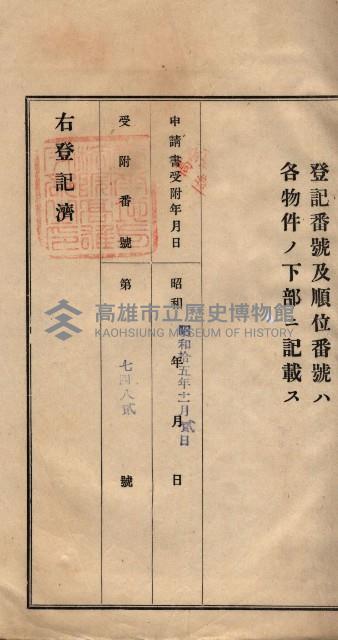 登記番號及順位番號ハ
各物件ノ下部ニ記載ス
申請書受附年月日
昭和 年 月 日
昭和拾五年十一月貳日
受附番號
第 七四八貳 號
右登記濟
高雄市立歷史博物館
KAOHSIUNG MUSEUM OF HISTORY